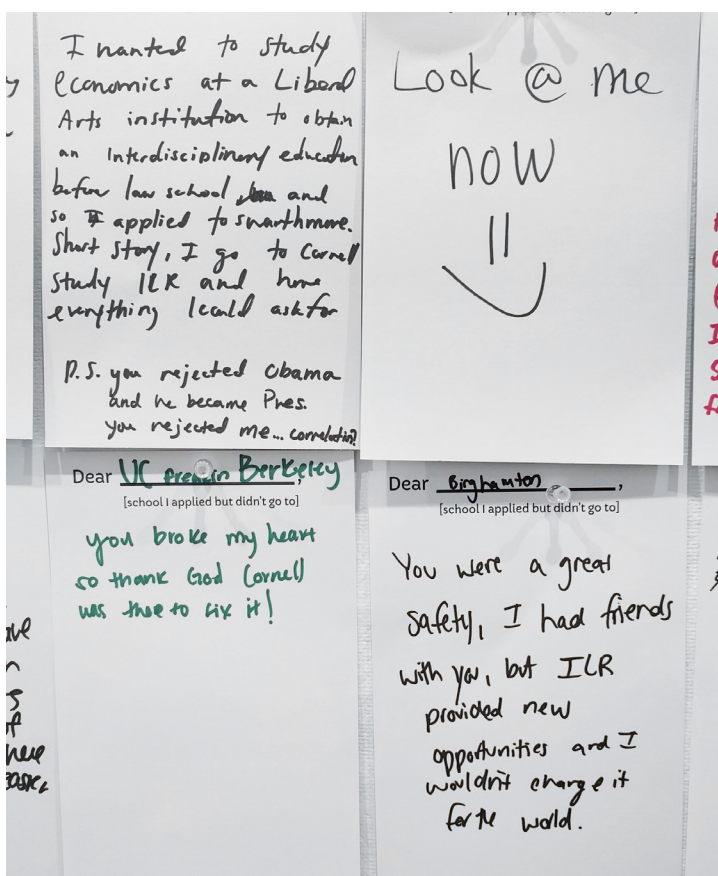 I wanted to study
economics at a Liberal
Arts institution to obtain
an Interdisciplinary education
before law school and
so I applied to swarthmore.
Short story, I go to Cornell
study ILR and have
everything I could ask for
P.S. you rejected Obama
and he became Pres.
you rejected me... correlation?
Look @ me
now
=)
Dear UC Berkeley,
[school I applied but didn't go to]
you broke my heart
so thank God Cornell
was there to fix it!
Dear Binghamton,
[school I applied but didn't go to]
You were a great
safety, I had friends
with you, but ILR
provided new
opportunities and I
wouldn't change it
for the world.